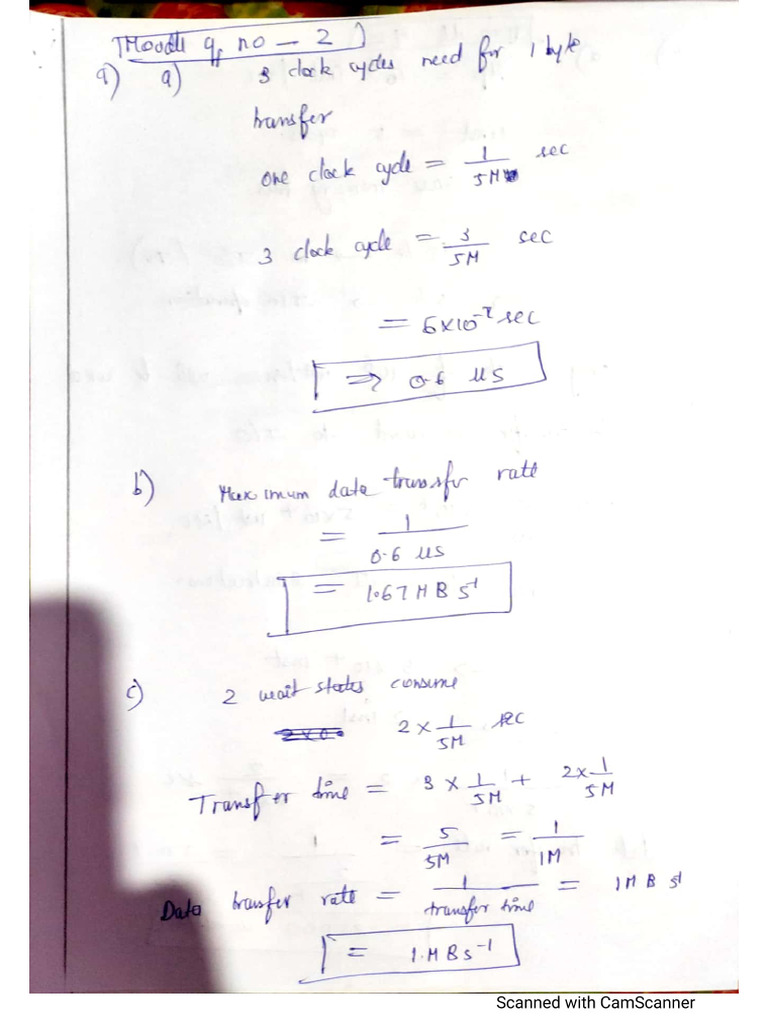 Moodle q no - 2
a) a) 3 clock cycles need for 1 byte
transfer
one clock cycle = 1/5M sec
3 clock cycle = 3/5M sec
= 6x10^-7 sec
=> 0.6 us
b) Maximum data transfer rate
= 1/0.6 us
= 1.67 MB s^-1
c) 2 wait states consume
2 x 1/5M sec
Transfer time = 3 x 1/5M + 2x1/5M
= 5/5M = 1/1M
Data transfer rate = 1/transfer time = 1MB s^-1
= 1.MBs^-1
Scanned with CamScanner